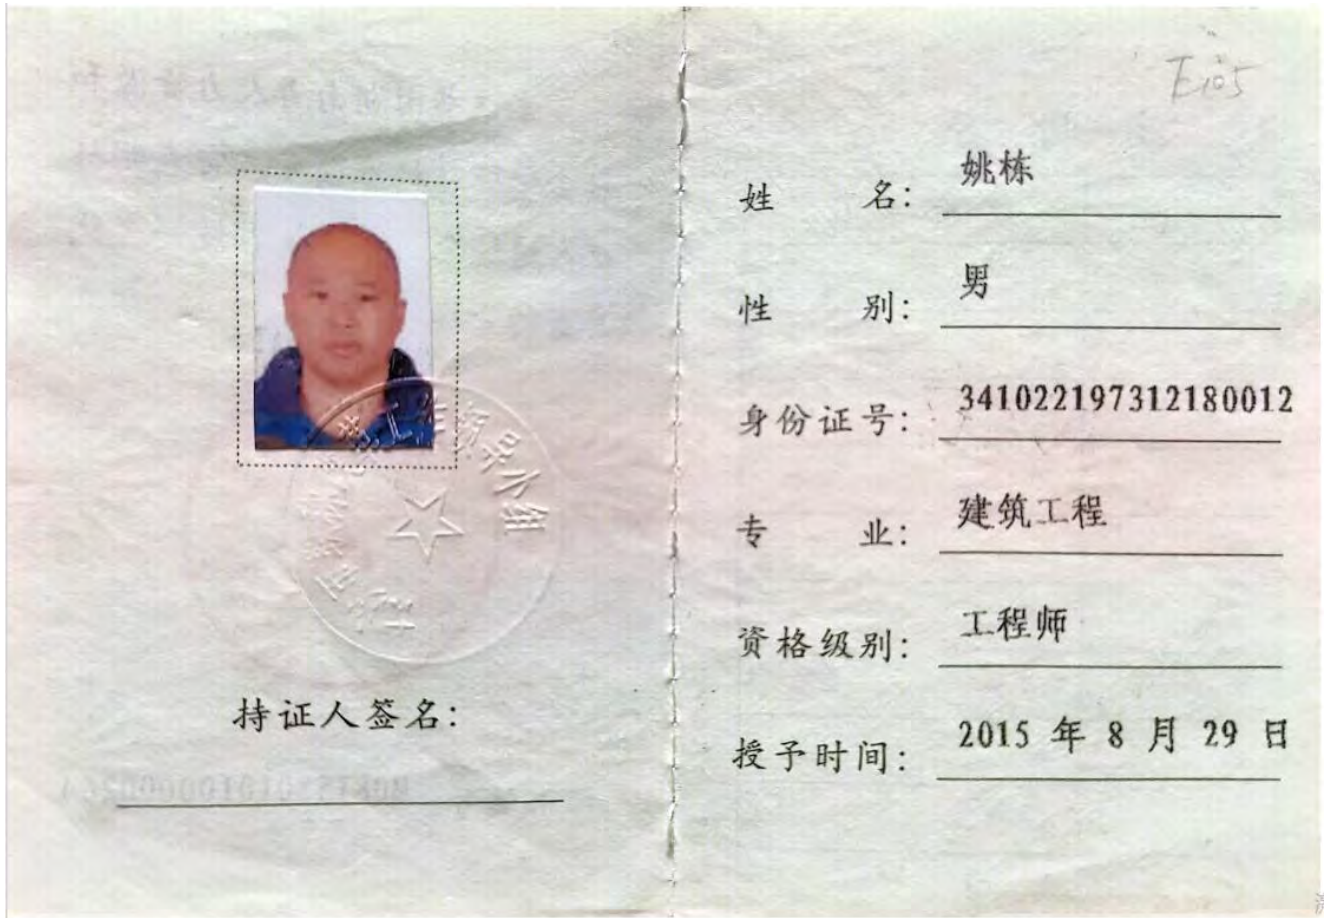 持证人签名:
E105
姓 名: 姚栋
性 别: 男
身份证号: 341022197312180012
专 业: 建筑工程
资格级别: 工程师
授予时间: 2015 年 8 月 29 日